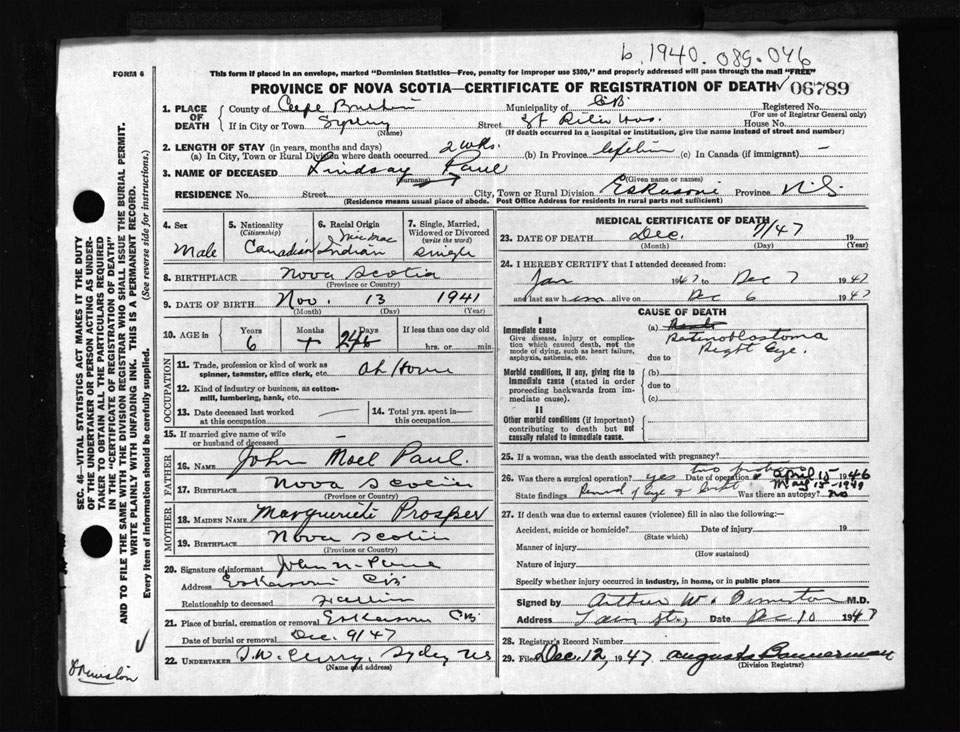 b. 1940. 089. 046
FORM 6
This form if placed in an envelope, marked "Dominion Statistics—Free, penalty for improper use $300," and properly addressed will pass through the mail "FREE"
PROVINCE OF NOVA SCOTIA—CERTIFICATE OF REGISTRATION OF DEATH 06789
1. PLACE OF DEATH
County of Cape Breton Municipality of C.B. Registered No.
(For use of Registrar General only)
If in City or Town Sydney Street St Hos. House No.
(Name) (If death occurred in a hospital or institution, give the name instead of street and number)
2. LENGTH OF STAY (in years, months and days)
(a) In City, Town or Rural Division where death occurred 2 wks. (b) In Province lifetime (c) In Canada (if immigrant) —
3. NAME OF DECEASED Lindsay Paul
(Surname) (Given name or names)
RESIDENCE No. Street City, Town or Rural Division Eskasoni Province N.S.
(Residence means usual place of abode. Post Office Address for residents in rural parts not sufficient)
4. Sex
Male
5. Nationality
(Citizenship)
Canadian
6. Racial Origin
MicMac
Indian
7. Single, Married, Widowed or Divorced
(write the word)
single
8. BIRTHPLACE Nova Scotia
(Province or Country)
9. DATE OF BIRTH Nov. 13 1941
(Month) (Day) (Year)
10. AGE in
Years Months Days If less than one day
6 hrs. or min.
OCCUPATION
11. Trade, profession or kind of work as spinner, teamster, office clerk, etc. At Home
12. Kind of industry or business, as cotton-mill, lumbering, bank, etc.
13. Date deceased last worked at this occupation —
14. Total yrs. spent in this occupation —
15. If married give name of wife or husband of deceased —
FATHER
16. NAME John Noel Paul.
17. BIRTHPLACE Nova Scotia
(Province or Country)
MOTHER
18. MAIDEN NAME Marguerite Prosper
19. BIRTHPLACE Nova Scotia
(Province or Country)
20. Signature of informant John N. Paul
Address Eskasoni C.B.
Relationship to deceased Father
21. Place of burial, cremation or removal Eskasoni C.B.
Date of burial or removal Dec. 9/47
22. UNDERTAKER Sydney NS
(Name and address)
MEDICAL CERTIFICATE OF DEATH
23. DATE OF DEATH Dec. 7/47 19
(Month) (Day) (Year)
24. I HEREBY CERTIFY that I attended deceased from:
Jan 1947 to Dec 7 1947
and last saw him alive on Dec 6 1947
CAUSE OF DEATH
I
Immediate cause
Give disease, injury or complication which caused death, not the mode of dying, such as heart failure, asphyxia, asthenia, etc.
(a) Retinoblastoma
Right Eye.
due to
Morbid conditions, if any, giving rise to immediate cause (stated in order proceeding backwards from immediate cause).
(b)
due to
(c)
II
Other morbid conditions (if important) contributing to death but not causally related to immediate cause.
25. If a woman, was the death associated with pregnancy?
26. Was there a surgical operation? yes two Date of operation April 15 1946
May 15-1949
State findings Removal of eye & Was there an autopsy? no
27. If death was due to external causes (violence) fill in also the following:—
Accident, suicide or homicide? Date of injury 19
(State which)
Manner of injury
(How sustained)
Nature of injury
Specify whether injury occurred in industry, in home, or in public place
Signed by Arthur W. M.D.
Address Date Dec 10 1947
28. Registrar's Record Number
29. Filed Dec. 12, 1947 Augusta Bannerman
(Division Registrar)
SEC. 46—VITAL STATISTICS ACT MAKES IT THE DUTY OF THE UNDERTAKER OR PERSON ACTING AS UNDERTAKER TO OBTAIN ALL THE PARTICULARS REQUIRED IN THE "CERTIFICATE OF REGISTRATION OF DEATH" AND TO FILE THE SAME WITH THE DIVISION REGISTRAR WHO SHALL ISSUE THE BURIAL PERMIT.
WRITE PLAINLY WITH UNFADING INK. THIS IS A PERMANENT RECORD.
Every item of information should be carefully supplied. (See reverse side for instructions.)